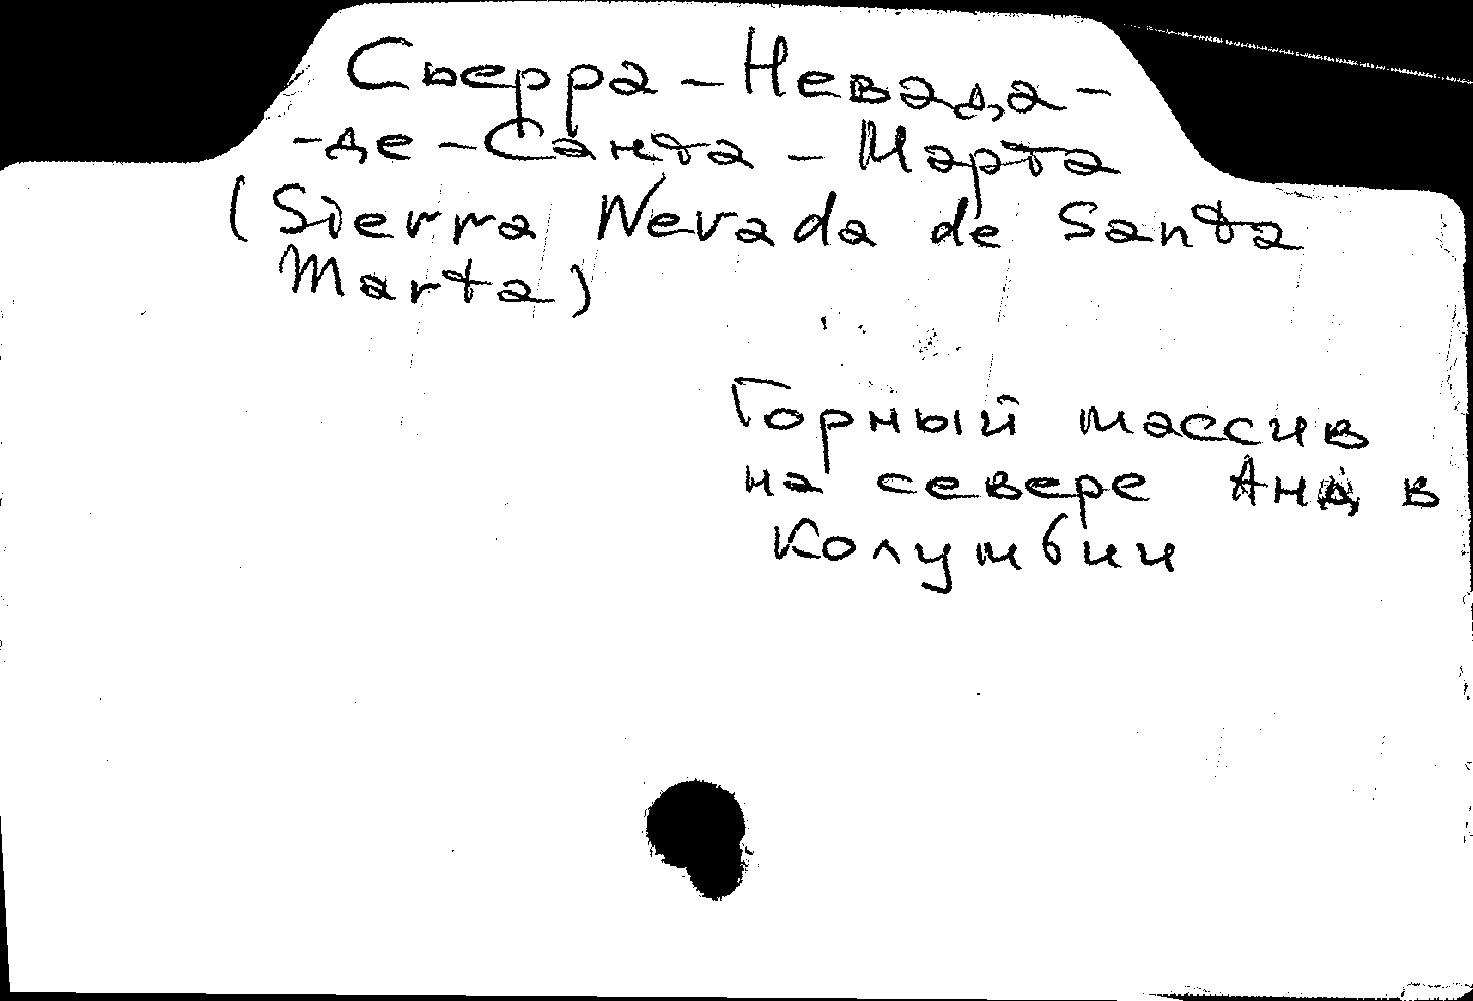 Сьерра-Невада-
-де-Санта-Марта
(Sierra Nevada de Santa
Marta)
Горный массив
на севере Анд в
Колумбии